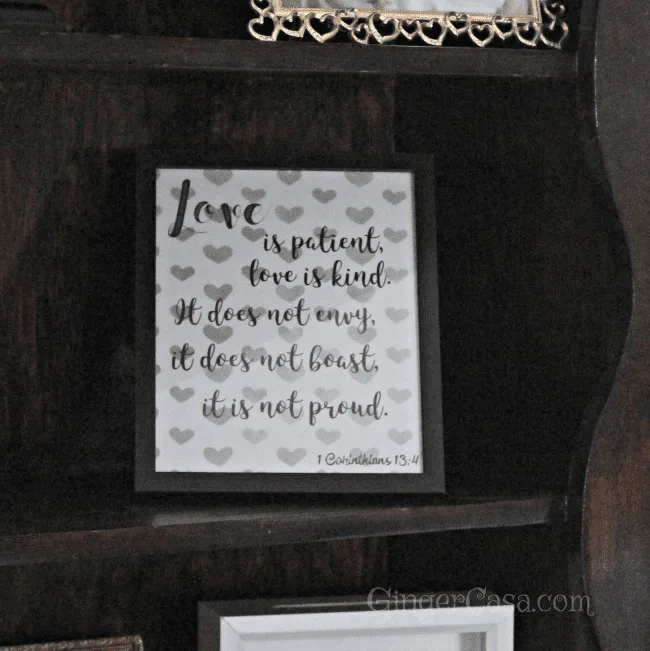 Love
is patient,
love is kind.
It does not envy,
it does not boast,
it is not proud.
1 Corinthians 13:4
GingerCasa.com